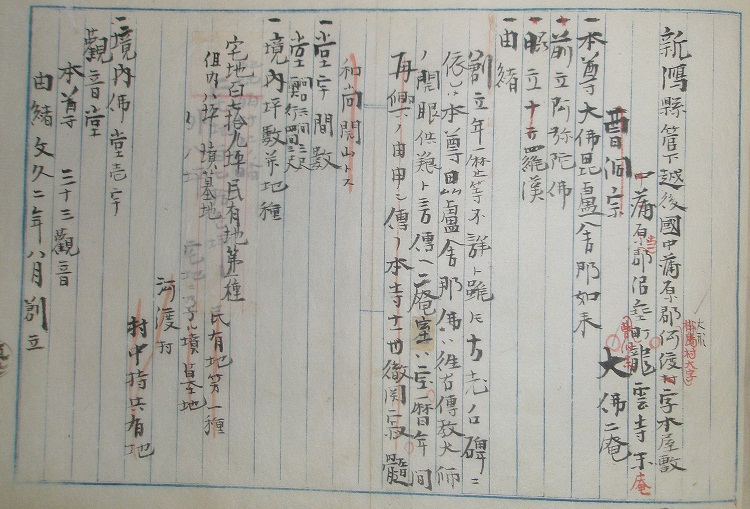 新潟縣管下越後國中蒲原郡河渡村字本屋敷
大形村大字
中蒲原郡沼垂町龍雲寺末庵
曹洞宗 大佛庵
一本尊 大佛毘盧舎那如来
一前立 阿弥陀佛
一脇立 十六羅漢
一由緒
創立年暦等不詳ト雖圧古老ノ碑ニ
依レハ本尊毘盧舎那佛ハ往古傳教大師
ノ開眼供養ト言傳ヘ庵室ハ宝暦年間
再興ノ由申シ傳ノ本寺十一世徹関寂髓
和尚開山トス
一堂宇間数
堂
一境内坪数并地種
宅地百七拾九坪 民有地第一種
但内八坪 墳墓地 民有地第一種
宅地 墳墓地
河渡村
村中持共有地
一境内佛堂壱宇
觀音堂
本尊 三十三觀音
由緒 文久二年八月創立